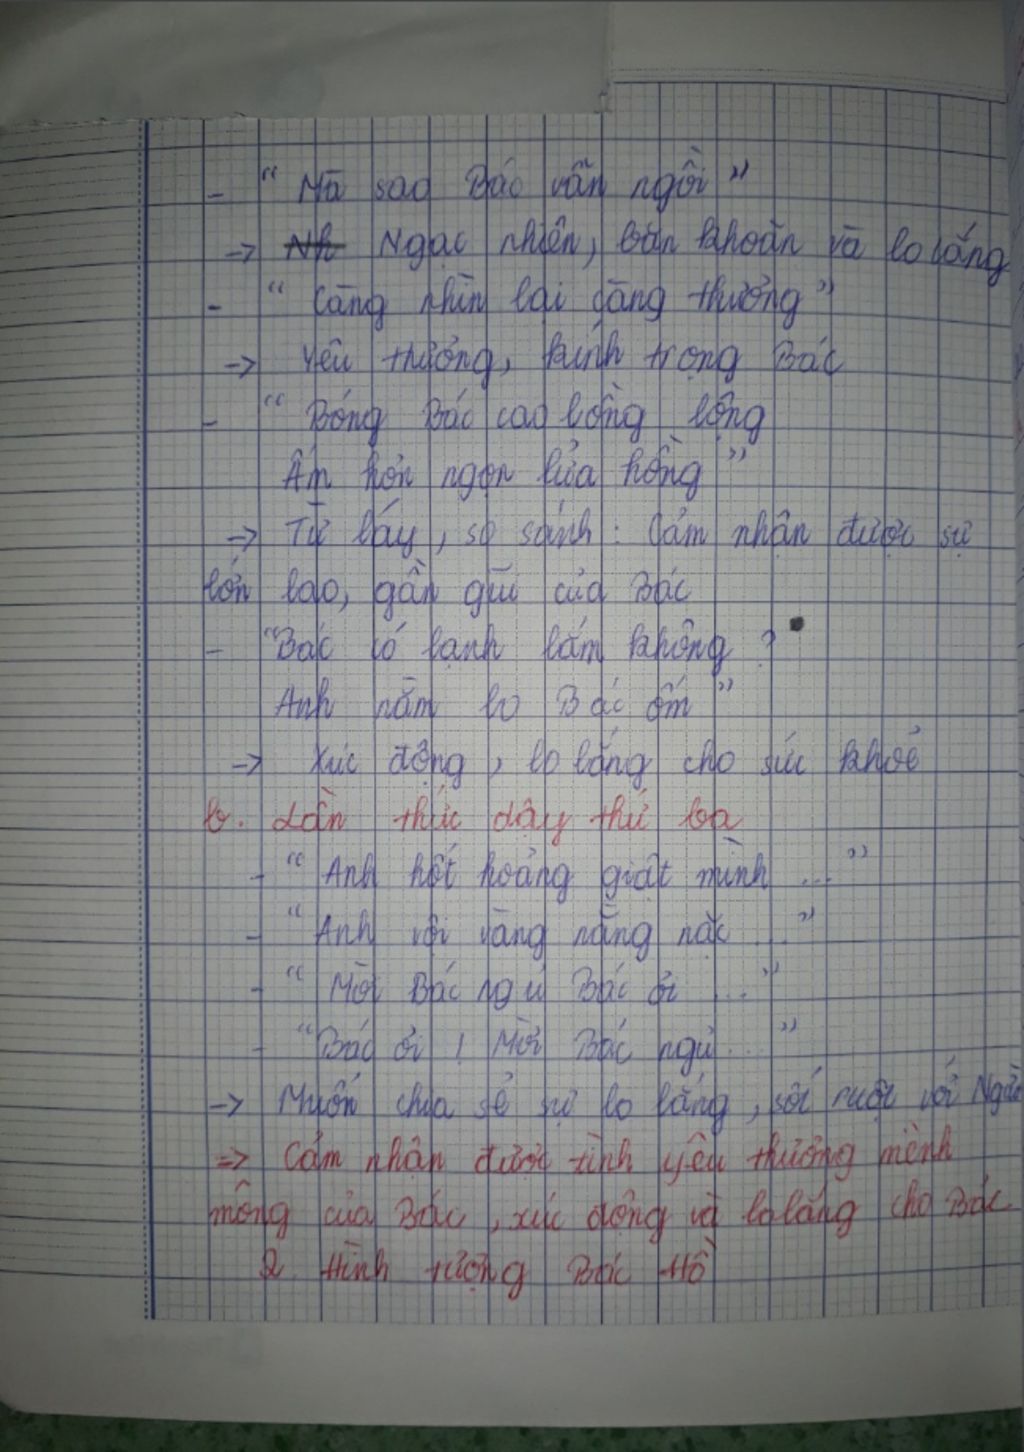 - "Mà sao Bác vẫn ngồi"
-> Nh Ngạc nhiên, băn khoăn và lo lắng
- "Càng nhìn lại càng thương"
-> Yêu thương, kính trọng Bác
- "Bóng Bác cao lồng lộng
Ấm hơn ngọn lửa hồng"
-> Từ láy, so sánh: Cảm nhận được sự
lớn lao, gần gũi của Bác
- "Bác có lạnh lắm không?
Anh nằm lo Bác ốm"
-> Xúc động, lo lắng cho sức khoẻ
b. Lần thức dậy thứ ba
- "Anh hốt hoảng giật mình ..."
- "Anh vội vàng nằng nặc ..."
- "Mời Bác ngủ Bác ơi ..."
- "Bác ơi! Mời Bác ngủ ..."
-> Muốn chia sẻ sự lo lắng, sốt ruột với Người
=> Cảm nhận được tình yêu thương mênh
mông của Bác, xúc động và lo lắng cho Bác
2. Hình tượng Bác Hồ